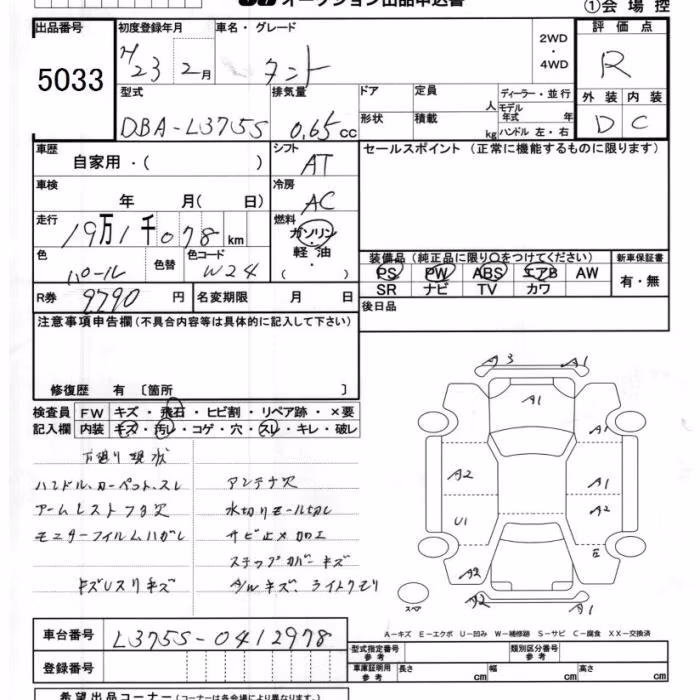 オークション出品申込書
①会場控
出品番号 初度登録年月 車名・グレード 評価点
5033 H23 2月 タント 2WD ・ 4WD R
型式 排気量 ドア 定員 人 ディーラー・並行 外装 内装
DBA-L375S 0.65cc 形状 積載 kg モデル年式 年 ハンドル 左・右 D C
車歴 自家用・( ) シフト AT セールスポイント (正常に機能するものに限ります)
車検 年 月( 日) 冷房 AC
走行 19万1千078km 燃料 ガソリン・軽油・( )
色 パール 色替 色コード W24 装備品 (純正品に限り○をつけてください) 新車保証書
PS PW ABS エアB AW 有・無
SR ナビ TV カワ
R券 9790円 名変期限 月 日 後日品
注意事項申告欄 (不具合内容等は具体的に記入して下さい)
修復歴 有 〔箇所 〕
検査員 FW キズ・飛石・ヒビ割・リペア跡・×要
記入欄 内装 キズ・汚レ・コゲ・穴・スレ・キレ・破レ
下廻り現状
ハンドル、カーペット、スレ アンテナ欠
アームレストフタ欠 水切りモール切レ
モニターフィルムハガレ サビ止メ加工
ステップカバーキズ
キズUスリキズ A/Wキズ、ライトクモリ
A3 A1
A1
A2 A1
U1 A2
E
A2
A2 A1
スペア
A-キズ E-エクボ U-凹み W-補修跡 S-サビ C-腐食 XX-交換済
車台番号 L375S-0412978 型式指定番号 参考 類別区分番号 参考
登録番号 車庫証明用 参考 長さ cm 幅 cm 高さ cm
希望出品コーナー (コーナーは各会場により異なります。)